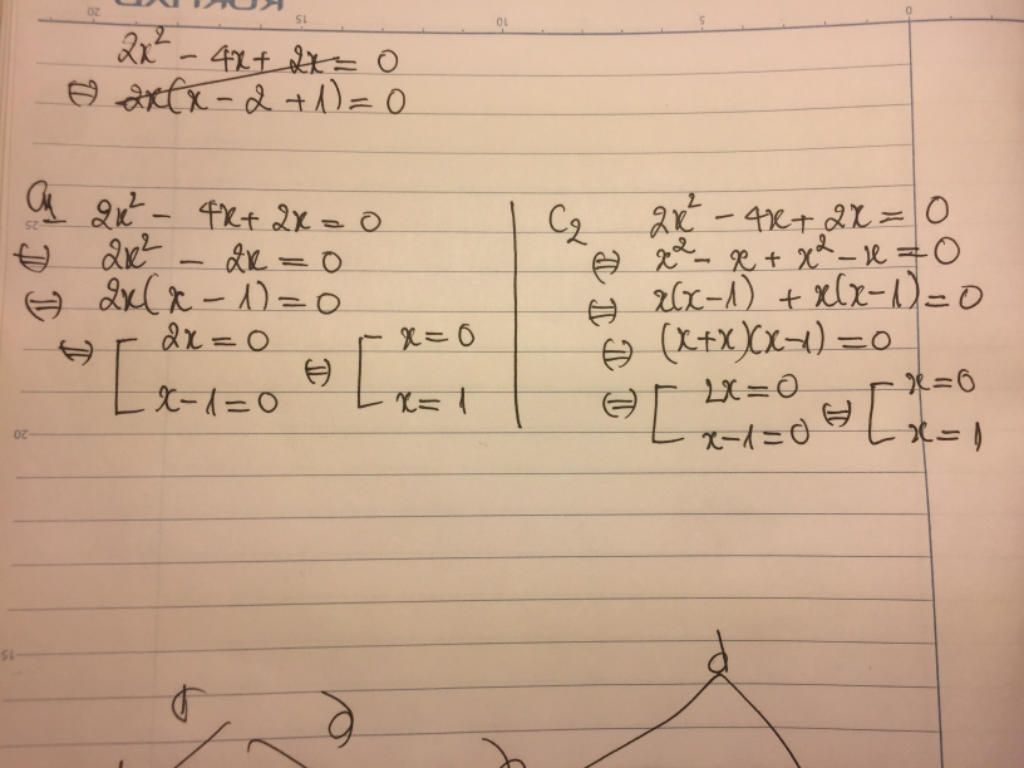 2x² - 4x + 2x = 0
⇔ 2x(x - 2 + 1) = 0
C1 2x² - 4x + 2x = 0
⇔ 2x² - 2x = 0
⇔ 2x(x - 1) = 0
⇔ [ 2x = 0 ⇔ [ x = 0
x - 1 = 0 x = 1
C2 2x² - 4x + 2x = 0
⇔ x² - x + x² - x = 0
⇔ x(x-1) + x(x-1) = 0
⇔ (x+x)(x-1) = 0
⇔ [ 2x = 0 ⇔ [ x = 0
x-1 = 0 x = 1
20 15 10 5 0
25
20
15
d